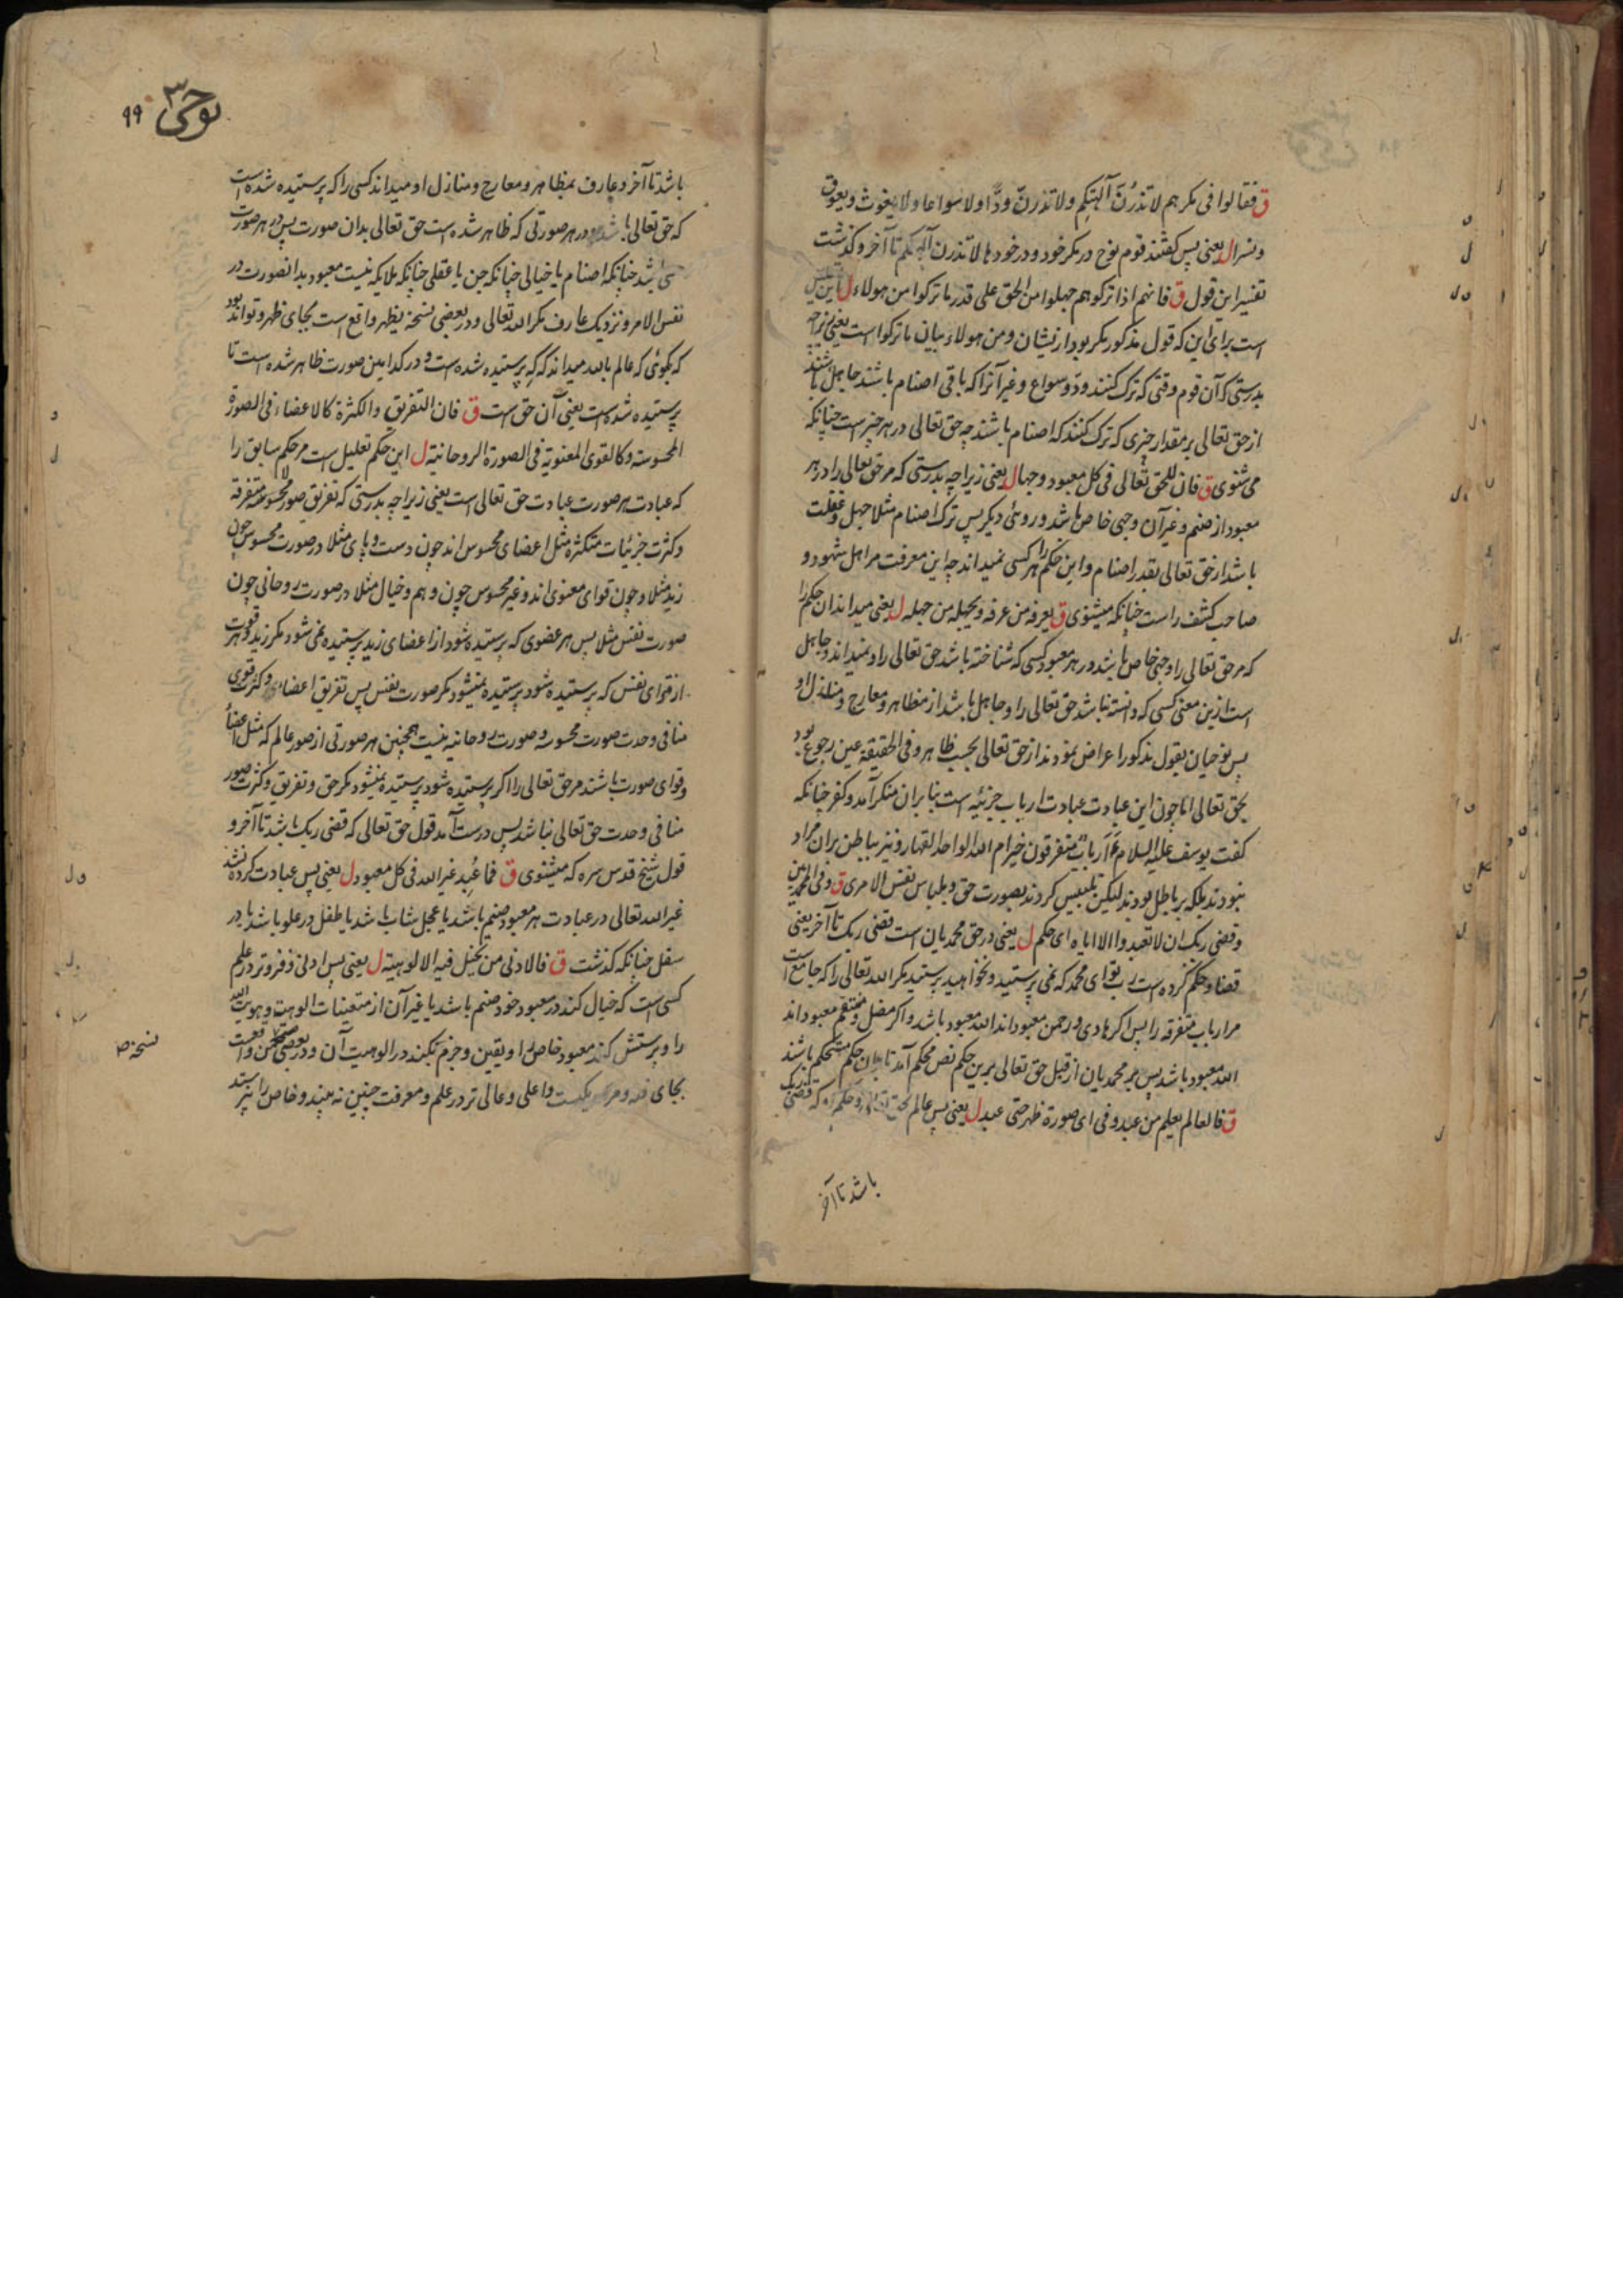 ق فقالوا فی مکرهم لا تذرنّ آلهتکم ولا تذرنّ ودّا ولا سواعا ولا یغوث ویعوق
ونسرا ل یعنی پس کفتند قوم نوح در مکر خود ودر خودها لا تذرن آلهتکم تا آخر وکذشت
تفسیر این قول ق فانهم اذا ترکوهم جهلوا من الحق علی قدر ما ترکوا من هولاء ل
است برای این که قول مذکور مکر بود از یشان ومن هولاء بیان ما ترکوا است یعنی زیراچه
بدرستی که آن قوم وقتی که ترک کنند ود وسواع وغیر آنرا که باقی اصنام باشند جاهل باشند
از حق تعالی بر مقدار چیزی که ترک کنند که اصنام باشند چه حق تعالی در هر چیز است چنانکه
می شنوی ق فان للحق تعالی فی کل معبود وجها ل یعنی زیراچه بدرستی که مر حق تعالی را در هر
معبود از صنم وغیر آن وجهی خاص باشد وروئی دیکر پس ترک اصنام مثلا جهل وغفلت
باشد از حق تعالی بقدر اصنام واین حکم را هر کسی نمیداند چه این معرفت مر اهل شهود و
صاحب کشف راست چنانکه میشنوی ق یعرفه من عرفه ویجهله من جهله ل یعنی میداند آن حکم را
که مر حق تعالی را وجهی خاص باشد در هر معبود کسی که شناخته باشد حق تعالی را ونمیداند وجاهل
است ازین معنی کسی که دانسته نباشد حق تعالی را وجاهل باشد از مظاهر ومعارج ومنازل او
پس نوحیان بقول مذکور اعراض نمودند از حق تعالی بحسب ظاهر وفی الحقیقة عین رجوع بود
بحق تعالی اما چون این عبادت عبادت ارباب جزئیه است بنا بران منکر آمد وکفر چنانکه
کفت یوسف علیه السلام ءَأرباب متفرقون خیر ام الله الواحد القهار ونیز بباطن بران مراد
نبودند بلکه بر باطل بودند لیکن تلبیس کردند بصورت حق وبلباس نفس الامری ق وفی المحمدیین
وقضی ربک ان لا تعبدوا الا ایاه ای حکم ل یعنی در حق محمدیان است قضی ربک تا آخر یعنی
قضا وحکم کرده است رب تو ای محمد که نمی پرستید ونخواهید پرستید مکر الله تعالی را که جامع است
مر ارباب متفرقه را پس اکر هادی ورحمن معبود اند الله معبود باشد واکر مضل ومنتقم معبود اند
الله معبود باشد پس مر محمدیان از قبل حق تعالی برین حکم نص محکم آمد تا بدان حکم مستحکم باشند
ق فالعالم یعلم من عبد وفی ای صورة ظهر حتی عبد ل یعنی پس عالم که قضی ربک
باشد تا آخر
نوحی ۳ ۹۹
باشد تا آخر وعارف بمظاهر ومعارج ومنازل او میداند کسی را که پرستیده شده است
که حق تعالی باشد ودر هر صورتی که ظاهر شده است حق تعالی بدان صورت پس در هر صورت
باشد چنانکه اصنام یا خیالی چنانکه جن یا عقلی چنانکه ملایکه نیست معبود بدانصورت در
نفس الامر ونزدیک عارف مکر الله تعالی ودر بعضی نسخه یظهر واقع است بجای ظهر وتواند بود
که بکوئی که عالم بالله میداند که که پرستیده شده است ودر کدامین صورت ظاهر شده است تا
پرستیده شده است یعنی آن حق است ق فان التفریق والکثرة کالاعضاء فی الصورة
المحسوسة وکالقوی المعنویة فی الصورة الروحانیة ل این حکم تعلیل است مر حکم سابق را
که عبادت هر صورت عبادت حق تعالی است یعنی زیراچه بدرستی که تفریق صور محسوسه متفرقه
وکثرت جزئیات متکثره مثل اعضای محسوس اند چون دست وپای مثلا در صورت محسوس چون
زید مثلا وچون قوای معنوی اند وغیر محسوس چون وهم وخیال مثلا در صورت روحانی چون
صورت نفس مثلا پس هر عضوی که پرستیده شود از اعضای زید پرستیده نمی شود مکر زید وهر قوت
از قوای نفس که پرستیده شود پرستیده نمیشود مکر صورت نفس پس تفریق اعضاء وکثرت قوی
منافی وحدت صورت محسوسه وصورت روحانیه نیست همچنین هر صورتی از صور عالم که مثل اعضاء
وقوای صورت باشند مر حق تعالی را اکر پرستیده شود پرستیده نمیشود مکر حق وتفریق وکثرت صور
منافی وحدت حق تعالی نباشد پس درست آمد قول حق تعالی که قضی ربک باشد تا آخر و
قول شیخ قدس سره که میشنوی ق فما عُبِد غیر الله فی کل معبود ل یعنی پس عبادت کرده نشد
غیر الله تعالی در عبادت هر معبود صنم باشد یا عجل شاب باشد یا طفل در علو باشد یا در
سفل چنانکه کذشت ق فالادنی من تخیل فیه الالوهیة ل یعنی پس ادنی وفروتر در علم
کسی است که خیال کند در معبود خود صنم باشد یا غیر آن از متعینات الوهیت وهویت الله
را وپرستش کند معبود خاص را ویقین وجزم نکند در الوهیت آن ودر بعضی نسخ واقعست
بجای فیه واعلی وعالی تر در علم ومعرفت چنین نه بیند وخاص را نپرستد
نسخه